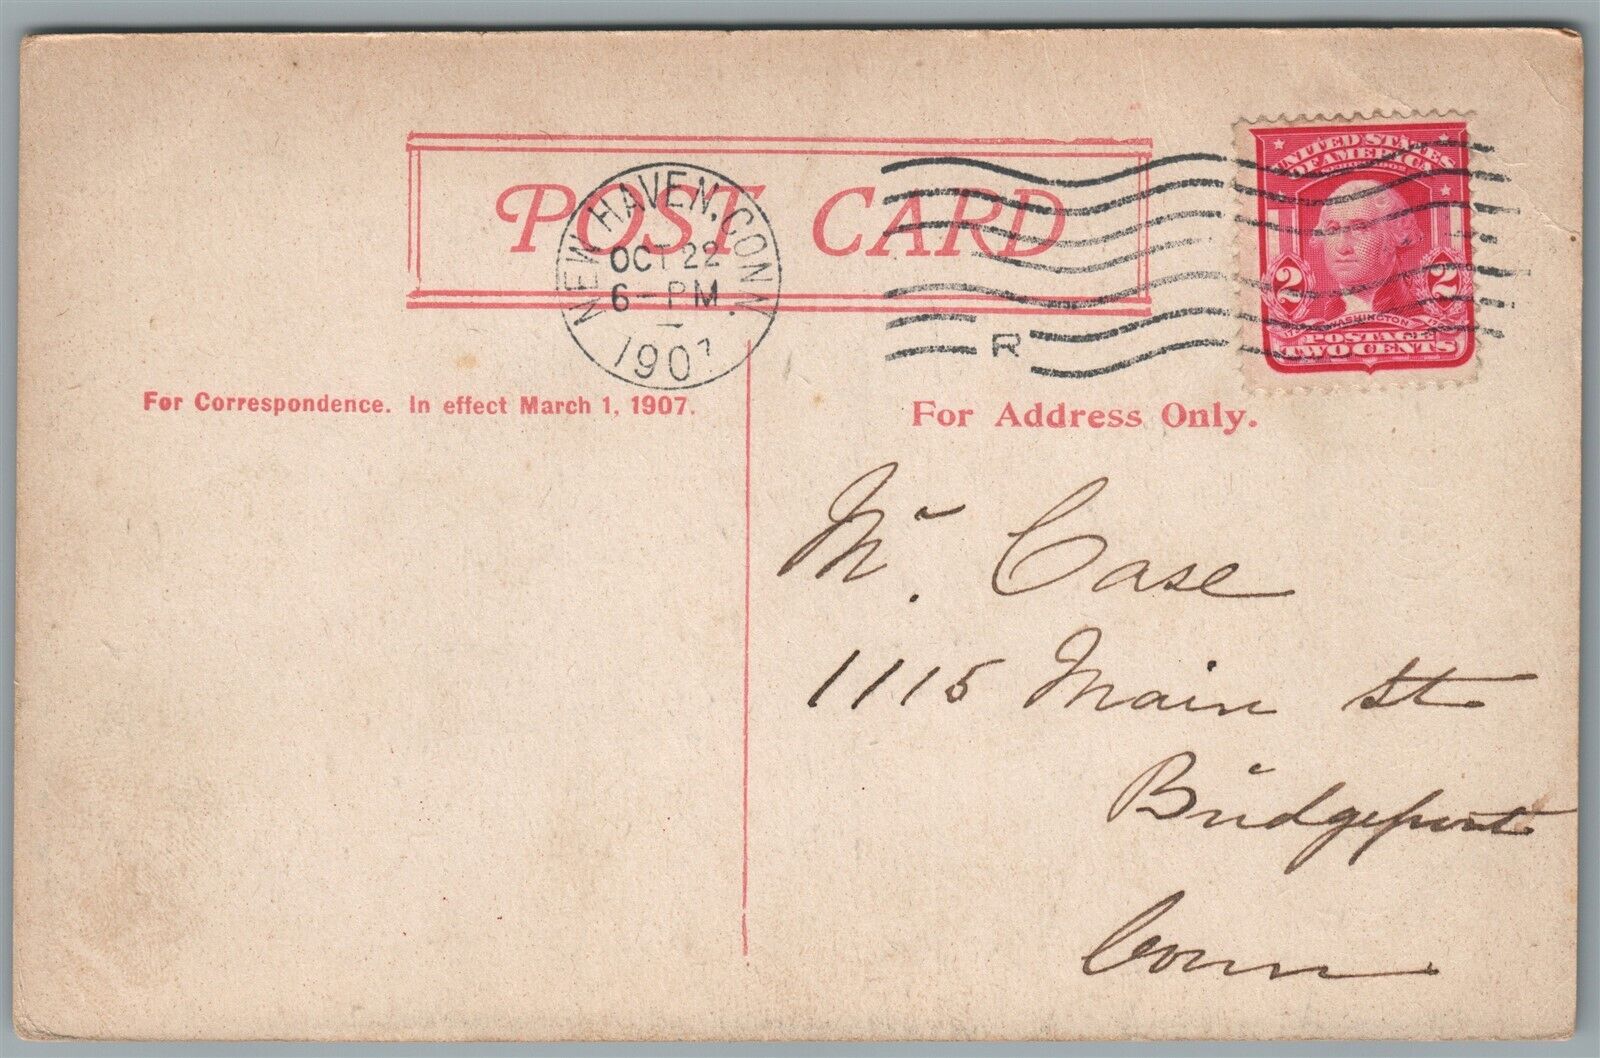 POST CARD
NEW HAVEN, CONN.
OCT 22
6-PM
1907
R
UNITED STATES
OF AMERICA
2 2
WASHINGTON
POSTAGE
TWO CENTS
For Correspondence. In effect March 1, 1907.
For Address Only.
Mr. Case
1115 Main St
Bridgeport
Conn